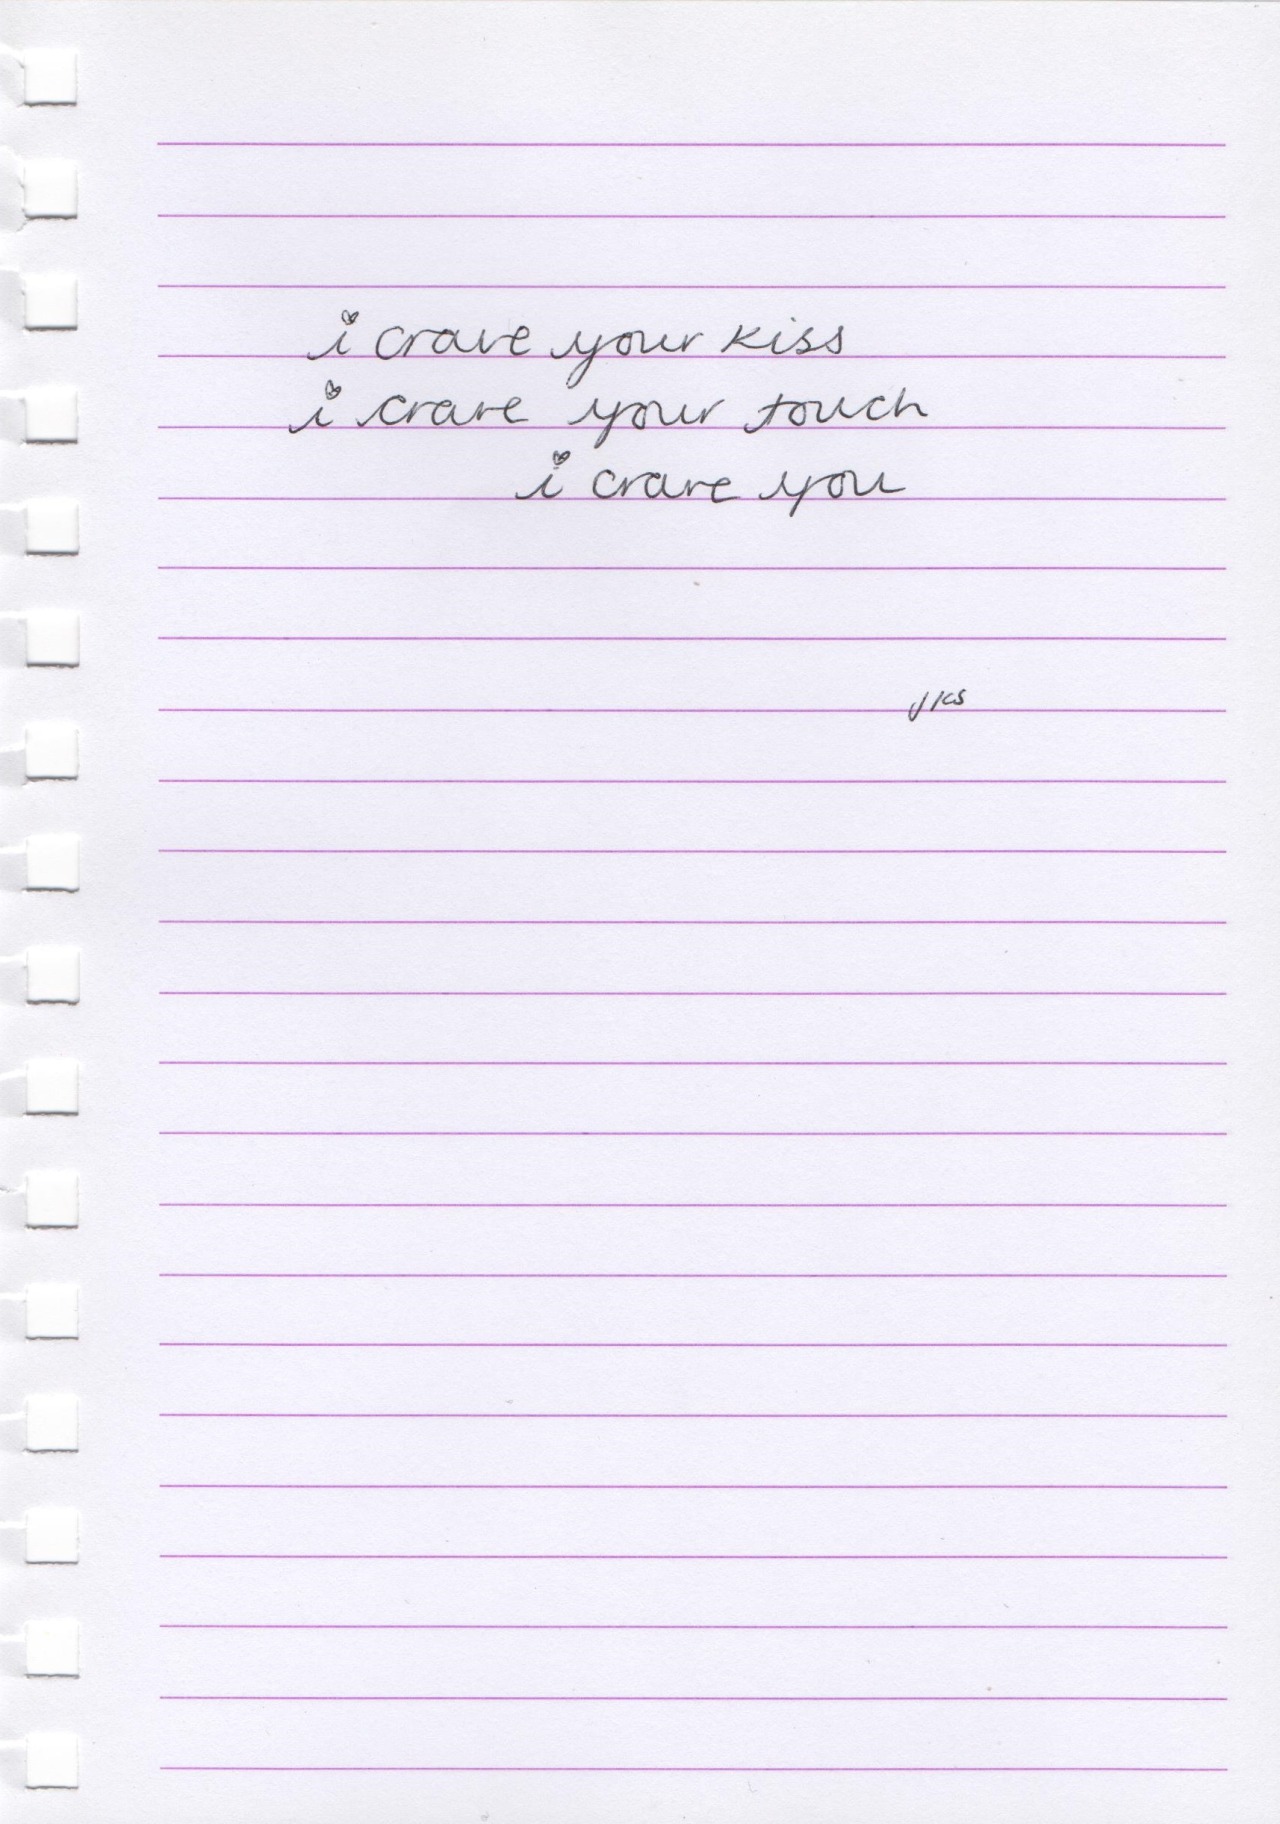 i crave your kiss
i crave your touch
i crave you
jks